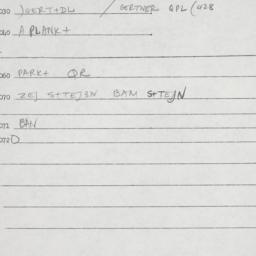 030 JGERT+DL / GERTNER QPL (U28
040 A PLANK+
060 PARK+ QR
070 ZEJ S+TEJ3N BAM S+TEJN
071 BAN
072D